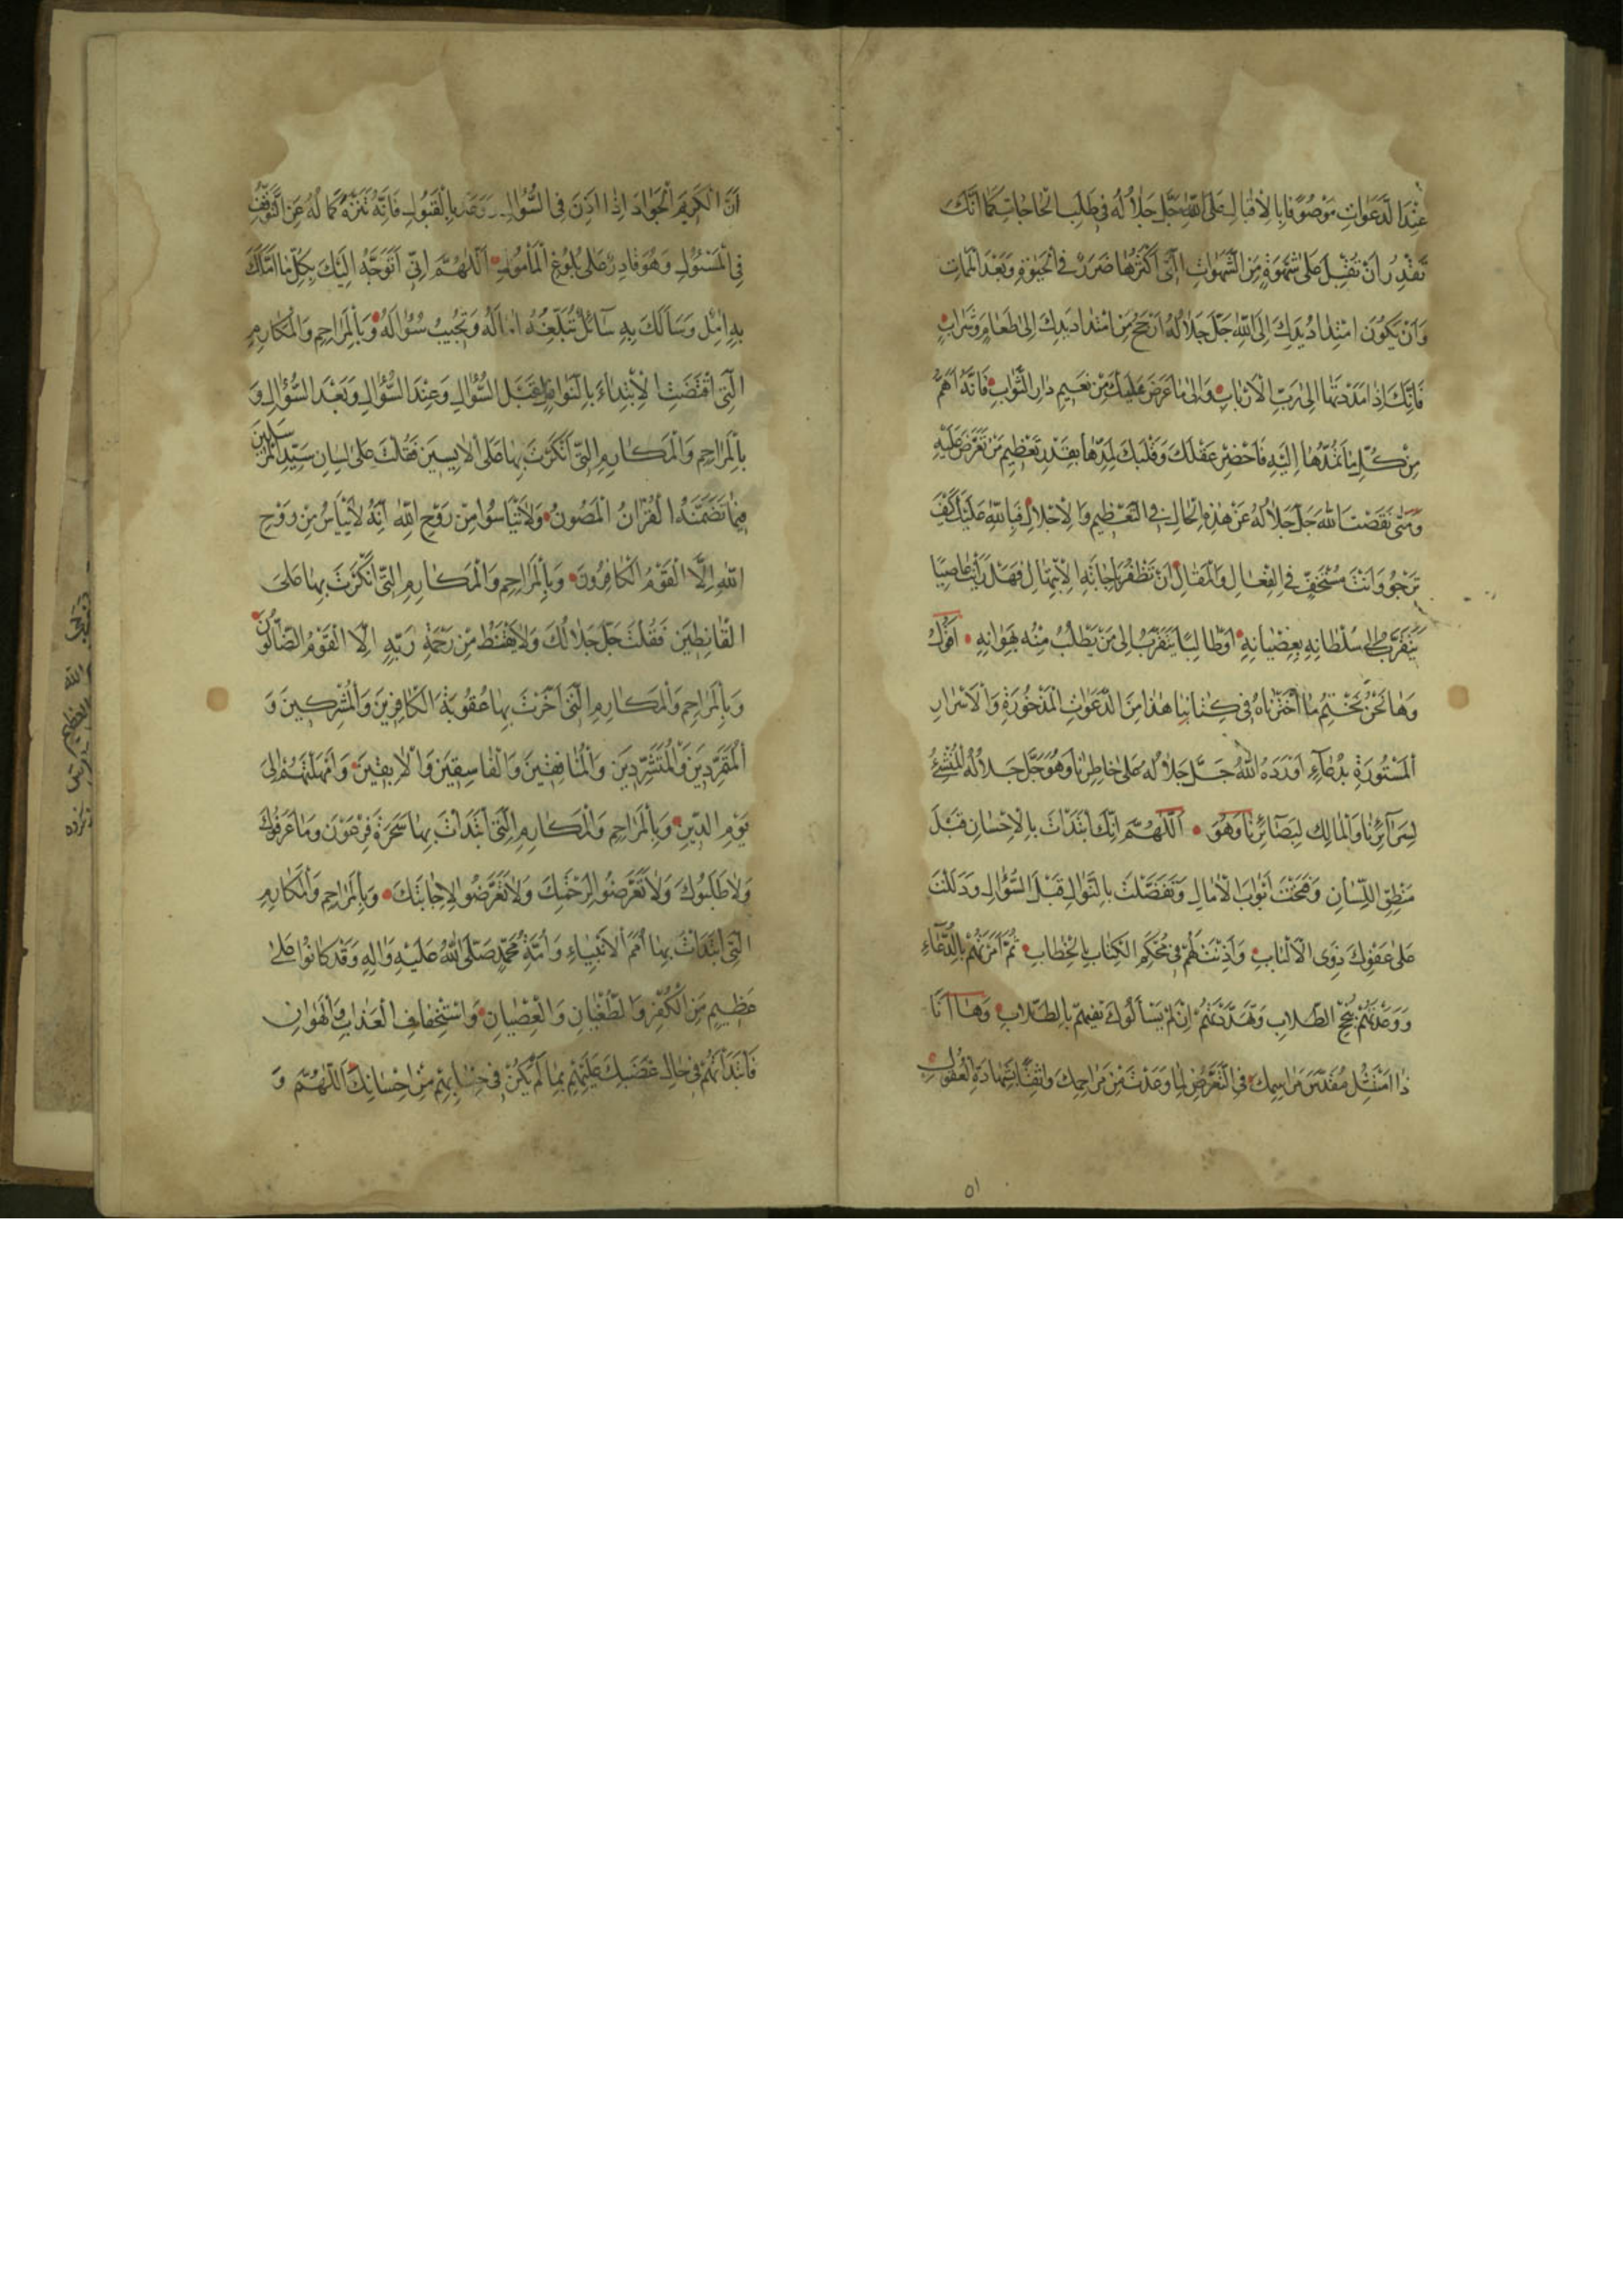 عِنْدَ الدَّعَوَاتِ مَوْصُوفًا بِالْإِقْبَالِ عَلَى اللّٰهِ جَلَّ جَلَالُهُ فِي طَلَبِ الْحَاجَاتِ كَمَا أَنَّكَ
تَقْدِرُ أَنْ تُقْبِلَ عَلَى شَهْوَةٍ مِنَ الشَّهَوَاتِ الَّتِي أَكْثَرُهَا ضَرَرٌ فِي الْحَيٰوةِ وَبَعْدَ الْمَمَاتِ
وَأَنْ يَكُونَ امْتِدَادُ يَدِكَ إِلَى اللّٰهِ جَلَّ جَلَالُهُ أَرْجَحَ مِنَ امْتِدَادِ يَدِكَ إِلَى طَعَامٍ وَشَرَابٍ
فَإِنَّكَ إِذَا مَدَدْتَهَا إِلَى رَبِّ الْأَرْبَابِ وَإِلَى مَا عَرَضَ عَلَيْكَ مِنْ نَعِيمِ دَارِ الثَّوَابِ فَإِنَّهُ أَهَمُّ
مِنْ كُلِّ مَا تَمُدُّهَا إِلَيْهِ فَأَحْضِرْ عَقْلَكَ وَقَلْبَكَ لِمَدِّهَا بِقَدْرِ تَعْظِيمِ مَنْ تَعَرَّضَ عَلَيْهِ
وَمَتَى نَقَصْتَ اللّٰهَ جَلَّ جَلَالُهُ عَنْ هٰذِهِ الْحَالِ فِي التَّعْظِيمِ وَالْإِجْلَالِ فَبِاللّٰهِ عَلَيْكَ كَيْفَ
تَرْجُو وَأَنْتَ مُسْتَخِفٌّ فِي الْفِعَالِ وَالْمَقَالِ أَنْ تَظْفَرَ بِإِجَابَةِ الْاِبْتِهَالِ فَهَلْ رَأَيْتَ عَاصِيًا
يَتَقَرَّبُ إِلَى سُلْطَانِهِ بِعِصْيَانِهِ أَوْ طَالِبًا يَتَقَرَّبُ إِلَى مَنْ يَطْلُبُ مِنْهُ بِهَوَانِهِ أَقُولُ
وَهَا نَحْنُ نَخْتِمُ مَا اخْتَرْنَاهُ فِي كِتَابِنَا هٰذَا مِنَ الدَّعَوَاتِ الْمَذْخُورَةِ وَالْأَسْرَارِ
الْمَسْتُورَةِ بِدُعَاءٍ أَوْرَدَهُ اللّٰهُ جَلَّ جَلَالُهُ عَلَى خَاطِرِنَا وَهُوَ جَلَّ جَلَالُهُ الْمُنْشِئُ
لِسَرَائِرِنَا وَالْمَالِكُ لِبَصَائِرِنَا وَهُوَ اَللّٰهُمَّ إِنَّكَ ابْتَدَأْتَ بِالْإِحْسَانِ قَبْلَ
مَنْطِقِ اللِّسَانِ وَفَتَحْتَ أَبْوَابَ الْآمَالِ وَتَفَضَّلْتَ بِالنَّوَالِ قَبْلَ السُّؤَالِ وَدَلَلْتَ
عَلَى عَفْوِكَ ذَوِي الْأَلْبَابِ وَأَذِنْتَ لَهُمْ فِي مُحْكَمِ الْكِتَابِ بِالْخِطَابِ ثُمَّ أَمَرْتَهُمْ بِالدُّعَاءِ
وَوَعَدْتَهُمْ بِنُجْحِ الطِّلَابِ وَهَدَّدْتَهُمْ إِنْ لَمْ يَسْأَلُوكَ بِالطِّلَابِ وَهَا أَنَا
ذَا امْتَثِلُ مُقَدَّسَ مَرَاسِمِكَ فِي التَّعَرُّضِ لِمَا وَعَدْتَ مِنْ مَرَاحِمِكَ وَاثِقًا بِشَهَادَةِ الْعُقُولِ
٥١
أَنَّ الْكَرِيمَ الْجَوَادَ إِذَا أَذِنَ فِي السُّؤَالِ وَوَعَدَ بِالْقَبُولِ فَإِنَّهُ تَنَزَّهَ كَمَالُهُ عَنِ التَّوَقُّفِ
فِي الْمَسْئُولِ وَهُوَ قَادِرٌ عَلَى بُلُوغِ الْمَأْمُولِ اَللّٰهُمَّ إِنِّي أَتَوَجَّهُ إِلَيْكَ بِكُلِّ مَا أَمَّلَكَ
بِهِ آمِلٌ وَسَأَلَكَ بِهِ سَائِلٌ تُبَلِّغُهُ آمَالَهُ وَتُجِيبُ سُؤَالَهُ وَبِالْمَرَاحِمِ وَالْمَكَارِمِ
الَّتِي اقْتَضَتِ الْاِبْتِدَاءَ بِالنَّوَالِ قَبْلَ السُّؤَالِ وَعِنْدَ السُّؤَالِ وَبَعْدَ السُّؤَالِ وَ
بِالْمَرَاحِمِ وَالْمَكَارِمِ الَّتِي أَنْكَرْتَ بِهَا عَلَى الْآيِسِينَ فَقُلْتَ عَلَى لِسَانِ سَيِّدِ الْمُرْسَلِينَ
فِيمَا تَضَمَّنَهُ الْقُرْآنُ الْمَصُونُ وَلَا تَيْأَسُوا مِنْ رَوْحِ اللّٰهِ إِنَّهُ لَا يَيْأَسُ مِنْ رَوْحِ
اللّٰهِ إِلَّا الْقَوْمُ الْكَافِرُونَ وَبِالْمَرَاحِمِ وَالْمَكَارِمِ الَّتِي أَنْكَرْتَ بِهَا عَلَى
الْقَانِطِينَ فَقُلْتَ جَلَّ جَلَالُكَ وَلَا يَقْنَطُ مِنْ رَحْمَةِ رَبِّهِ إِلَّا الْقَوْمُ الضَّالُّونَ
وَبِالْمَرَاحِمِ وَالْمَكَارِمِ الَّتِي أَخَّرْتَ بِهَا عُقُوبَةَ الْكَافِرِينَ وَالْمُشْرِكِينَ وَ
الْمُتَمَرِّدِينَ وَالْمُتَشَرِّدِينَ وَالْمُنَافِقِينَ وَالْفَاسِقِينَ وَالْآبِقِينَ وَأَمْهَلْتَهُمْ إِلَى
يَوْمِ الدِّينِ وَبِالْمَرَاحِمِ وَالْمَكَارِمِ الَّتِي ابْتَدَأْتَ بِهَا سَحَرَةَ فِرْعَوْنَ وَمَا عَرَفُوكَ
وَلَا طَلَبُوكَ وَلَا تَعَرَّضُوا لِرَحْمَتِكَ وَلَا تَعَرَّضُوا لِإِجَابَتِكَ وَبِالْمَرَاحِمِ وَالْمَكَارِمِ
الَّتِي ابْتَدَأْتَ بِهَا أُمَمَ الْأَنْبِيَاءِ وَأُمَّةَ مُحَمَّدٍ صَلَّى اللّٰهُ عَلَيْهِ وَآلِهِ وَقَدْ كَانُوا عَلَى
عَظِيمٍ مِنَ الْكُفْرِ وَالطُّغْيَانِ وَالْعِصْيَانِ وَاسْتِخْفَافِ الْعَذَابِ وَالْهَوَانِ
فَابْتَدَأْتَهُمْ فِي حَالِ غَضَبِكَ عَلَيْهِمْ بِمَا لَمْ يَكُنْ فِي حِسَابِهِمْ مِنْ إِحْسَانِكَ اَللّٰهُمَّ وَ